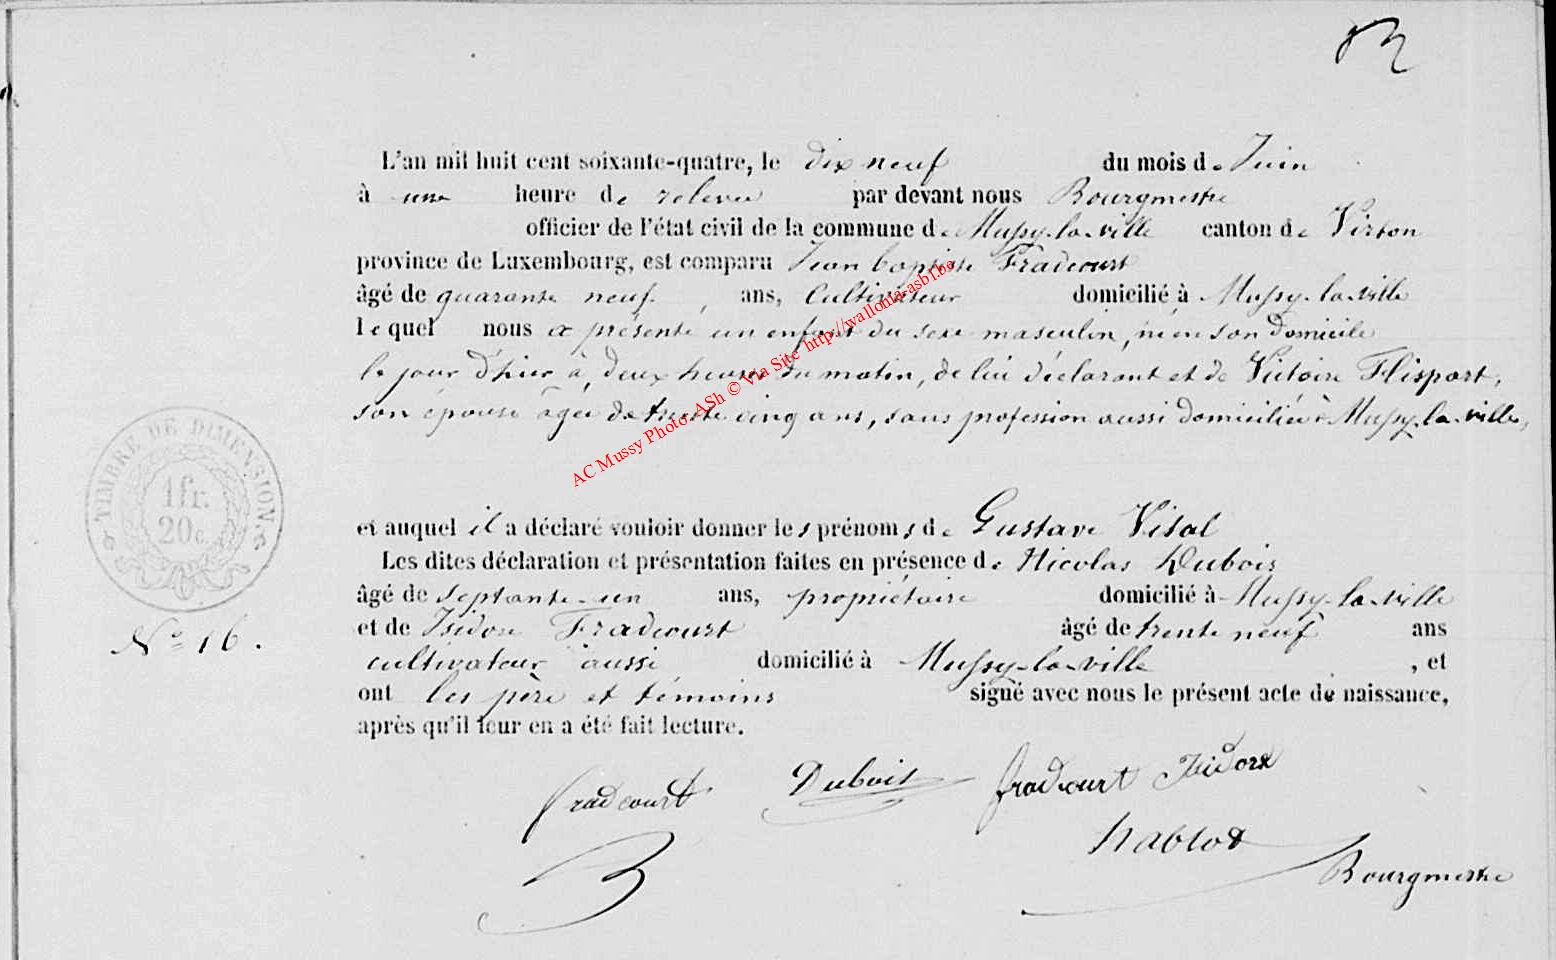 83
L'an mil huit cent soixante-quatre, le dix neuf du mois de Juin
à une heure de relevée par devant nous Bourgmestre
officier de l'état civil de la commune de Mussy-la-ville canton de Virton
province de Luxembourg, est comparu Jean baptiste Fradcourt
âgé de quarante neuf ans, Cultivateur domicilié à Mussy-la-ville
lequel nous a présenté un enfant du sexe masculin, né en son domicile
le jour d'hier à deux heures du matin, de lui déclarant et de Victoire Flispart,
son épouse âgée de trente cinq ans, sans profession aussi domiciliée à Mussy-la-ville,
AC Mussy Photo- ASh © Via Site http://wallonia-asbl.be
TIMBRE DE DIMENSION.
1fr.
20c.
et auquel il a déclaré vouloir donner les prénoms de Gustave Vital
Les dites déclaration et présentation faites en présence de Nicolas Dubois
âgé de septante-un ans, propriétaire domicilié à Mussy-la-ville
No 16.
et de Isidore Fradcourt âgé de trente neuf ans
cultivateur aussi domicilié à Mussy-la-ville, et
ont les père et témoins signé avec nous le présent acte de naissance,
après qu'il leur en a été fait lecture.
fradcourt Dubois fradcourt Isidore
hablot
Bourgmestre